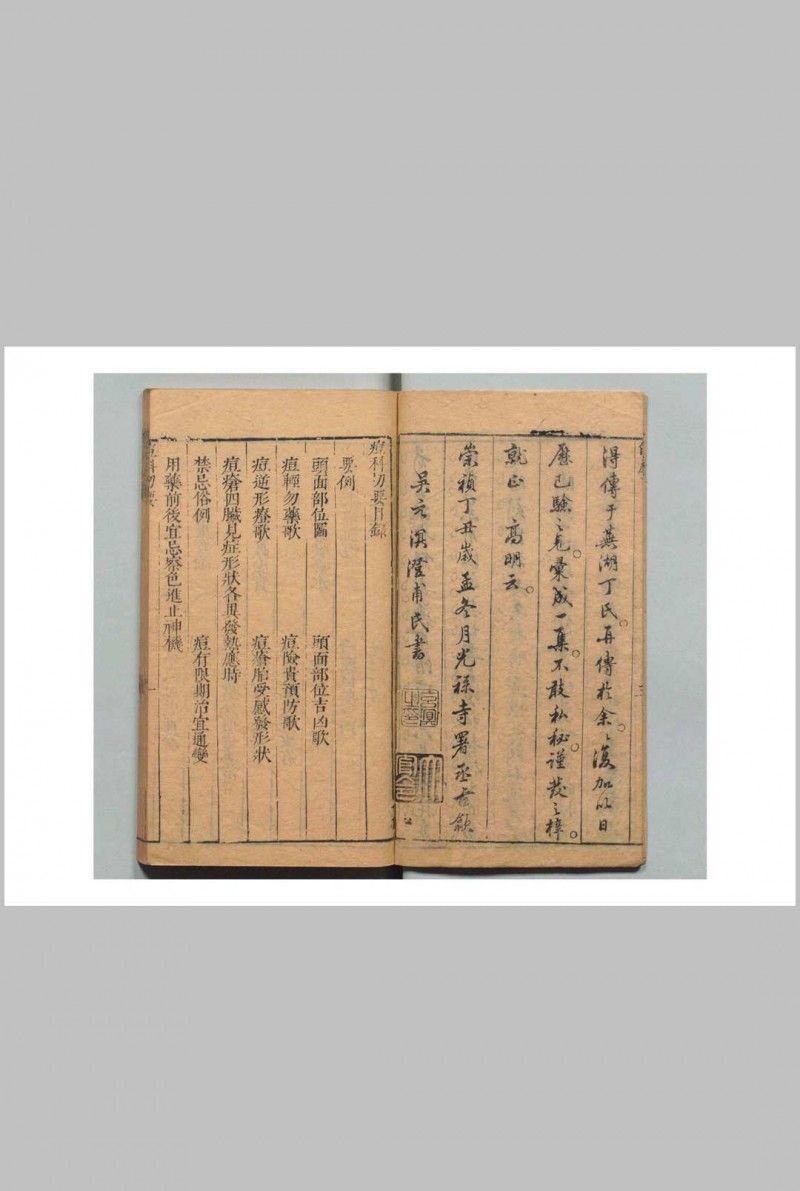 得傳于蕪湖丁氏。再傳於余。々復加以日
歷已驗之見。彙成一集。不敢私秘。謹發之梓。
就正 高明云。
崇禎丁丑歲孟冬月光祿寺署丞古歙
吳元溟澄甫氏書
痘科切要目錄
要例
頭面部位圖 頭面部位吉凶歌
痘輕勿藥歌 痘險貴預防歌
痘逆形療歌 痘瘡胎受感發形狀
痘瘡四臟見症形狀各異發熱應時
禁忌俗例 痘有限期治宜通變
用藥前後宜忌察色進止神機
痘科切要 一